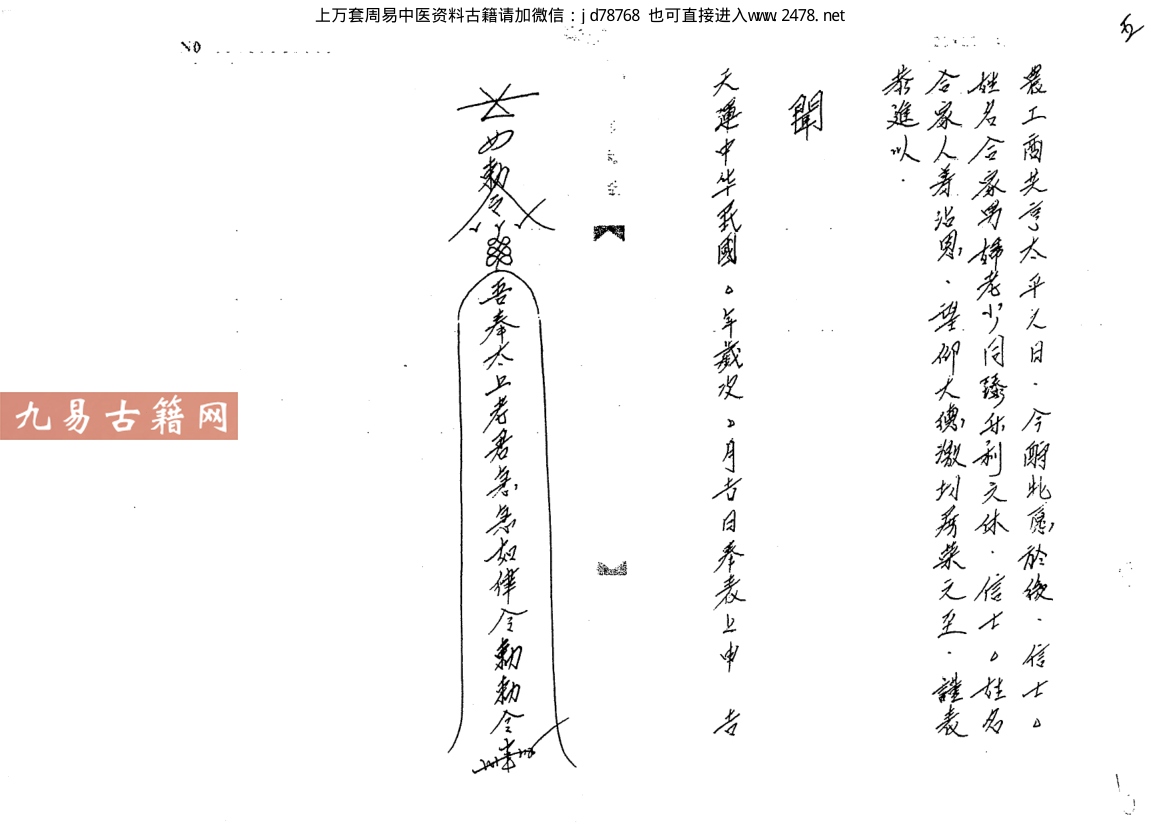 上万套周易中医资料古籍请加微信：jd78768 也可直接进入www.2478.net
NO
農工商共亨太平之日．今酧於後．信士。
姓名合家男婦老少同臻利元休．信士。姓名
合家人等沾恩．望仰大德激切荣元至．謹表
恭進以．
聞
天運中华民國。年歲次。月吉日奉表上申 吉
敕令
吾奉太上老君急急如律令敕敕令
九易古籍网